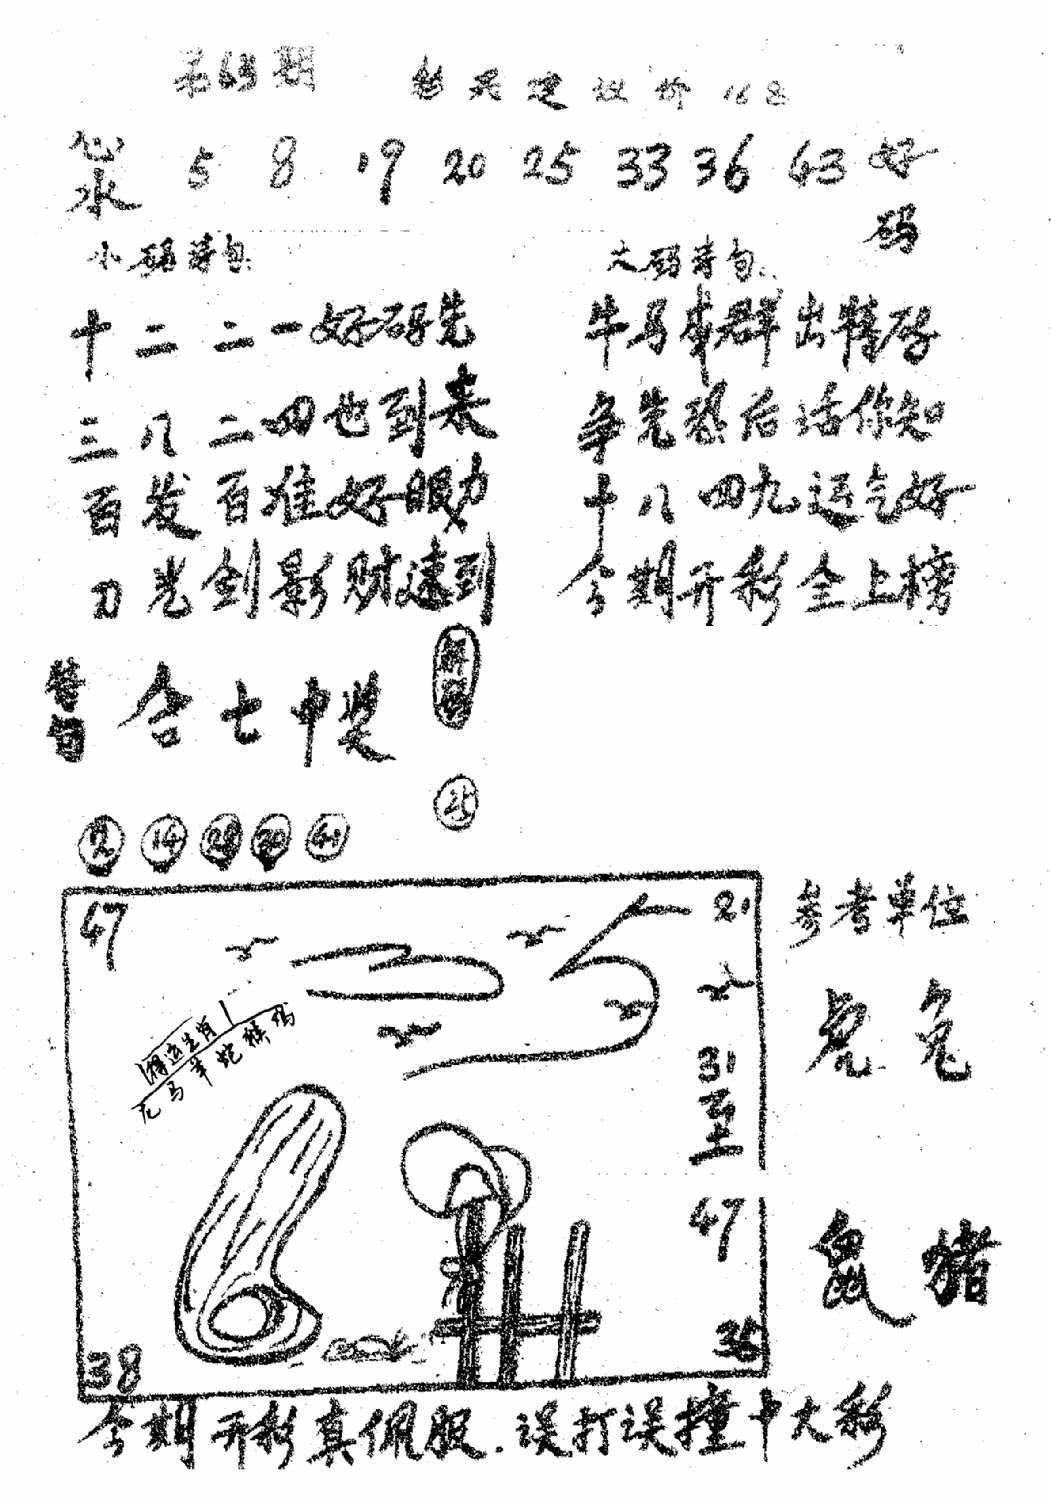 第63期 彩民建议价168
心水 5 8 19 20 25 33 36 43 好码
小码诗句
大码诗句
十二二一好码先
三八二四也到来
百发百准好眼力
刀光剑影财速到
牛马成群出特码
争先恐后话你知
十八四九运气好
今期开彩全上榜
特句 合七中奖
解
25
2 14 28 30 40
47
21
得运生肖
龙马羊蛇猴鸡
31至47
38
36
参考单位
虎兔
鼠猪
今期开彩真佩服.误打误撞中大彩